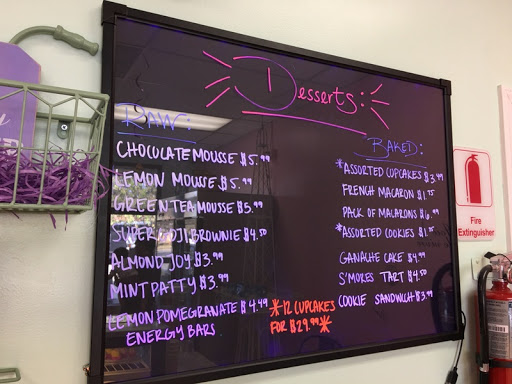 Desserts:
RAW:
CHOCOLATE MOUSSE $5.99
LEMON MOUSSE $5.99
GREEN TEA MOUSSE $5.99
SUPER GOJI BROWNIE $4.50
ALMOND JOY $3.99
MINT PATTY $3.99
LEMON POMEGRANATE $4.49
ENERGY BARS
BAKED:
*ASSORTED CUPCAKES $3.99
FRENCH MACARON $1.75
PACK OF MACARONS $6.99
*ASSORTED COOKIES $1.85
GANACHE CAKE $4.99
S'MORES TART $4.50
COOKIE SANDWICH $3.99
*12 CUPCAKES
FOR $29.99*
Fire
Extinguisher